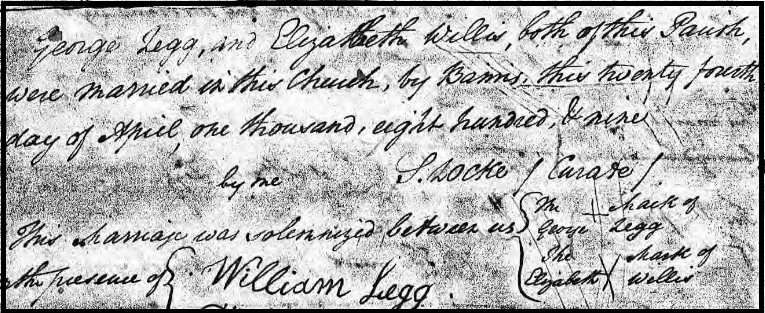 George Legg, and Elizabeth Willis, both of this Parish,
were married in this Church, by Banns, this twenty fourth
day of April, one thousand, eight hundred, & nine
by me S. Locke / Curate /
This Marriage was solemnized between us { The X Mark of
George Legg
The X Mark of
Elizabeth Willis
in the presence of { William Legg.